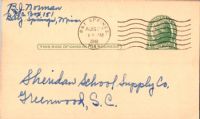 R.J. Norman
Box 151
Bay Springs, Miss.
BAY SPRINGS
AUG
PM
THIS SIDE OF CARD IS FOR ADDRESS
Sheridan School Supply Co.
Greenwood, S.C.